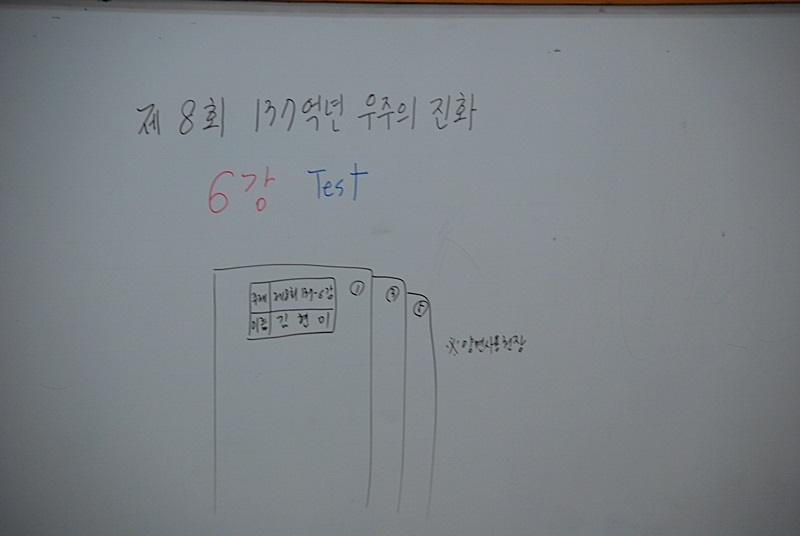 제 8회 137억년 우주의 진화
6강 Test
주제 제8회 137-6강 ①
이름 김 현 미
③
⑤
※ 양면사용권장